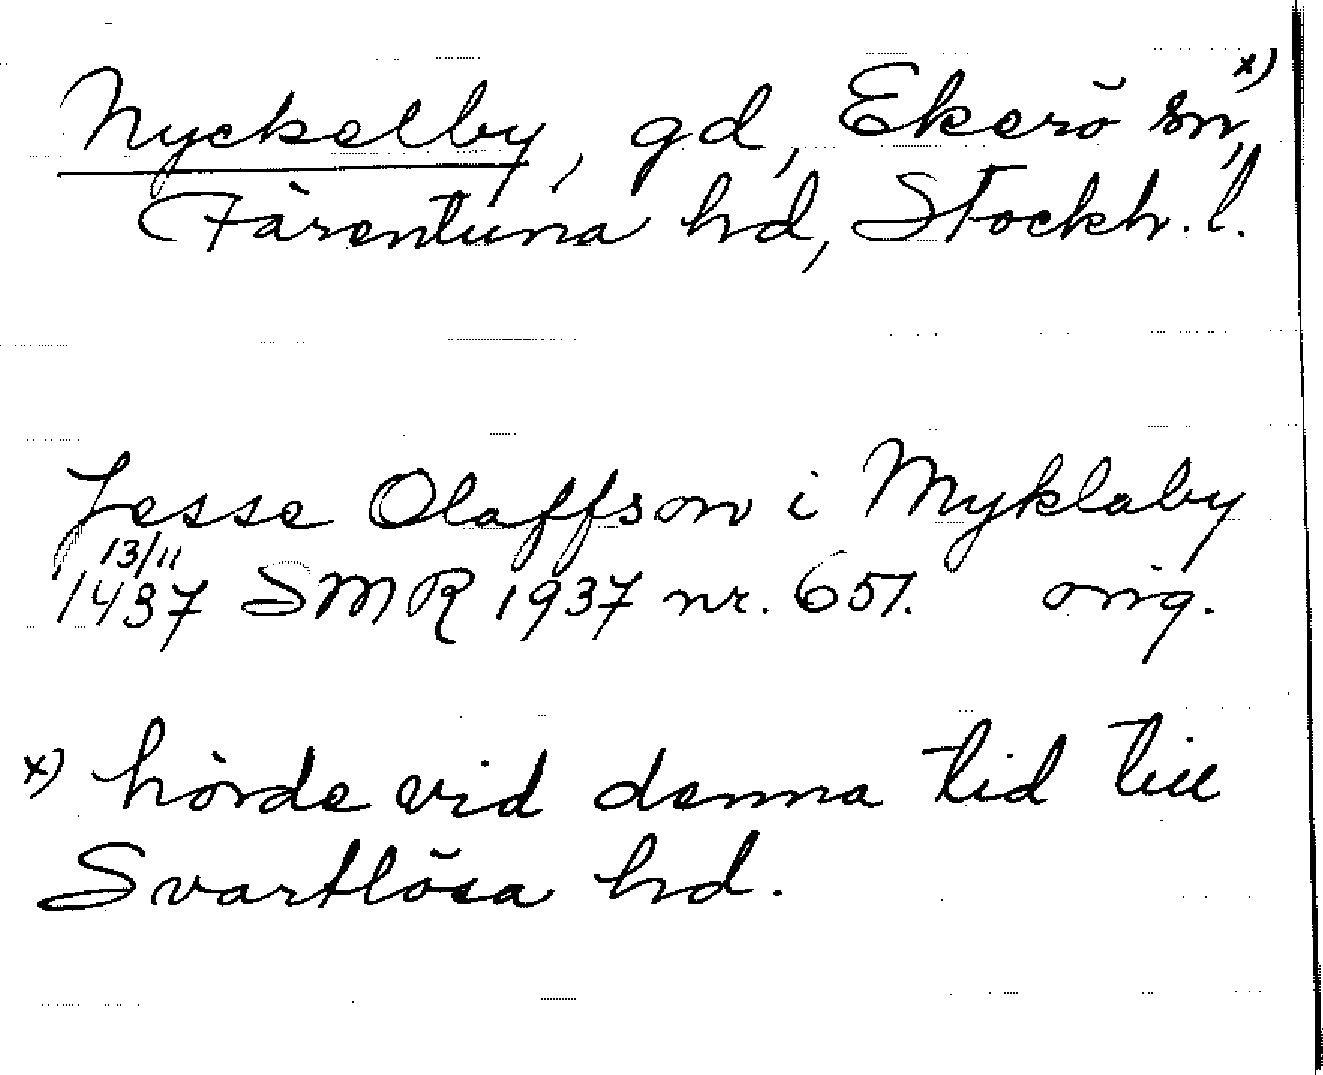 Nyckelby, gd, Ekerö sn, x)
Färentuna hd, Stockh. l.
Jesse Olaffson i Myklaby
13/11
1437 SMR 1937 nr. 651. orig.
x) hörde vid denna tid till
Svartlösa hd.